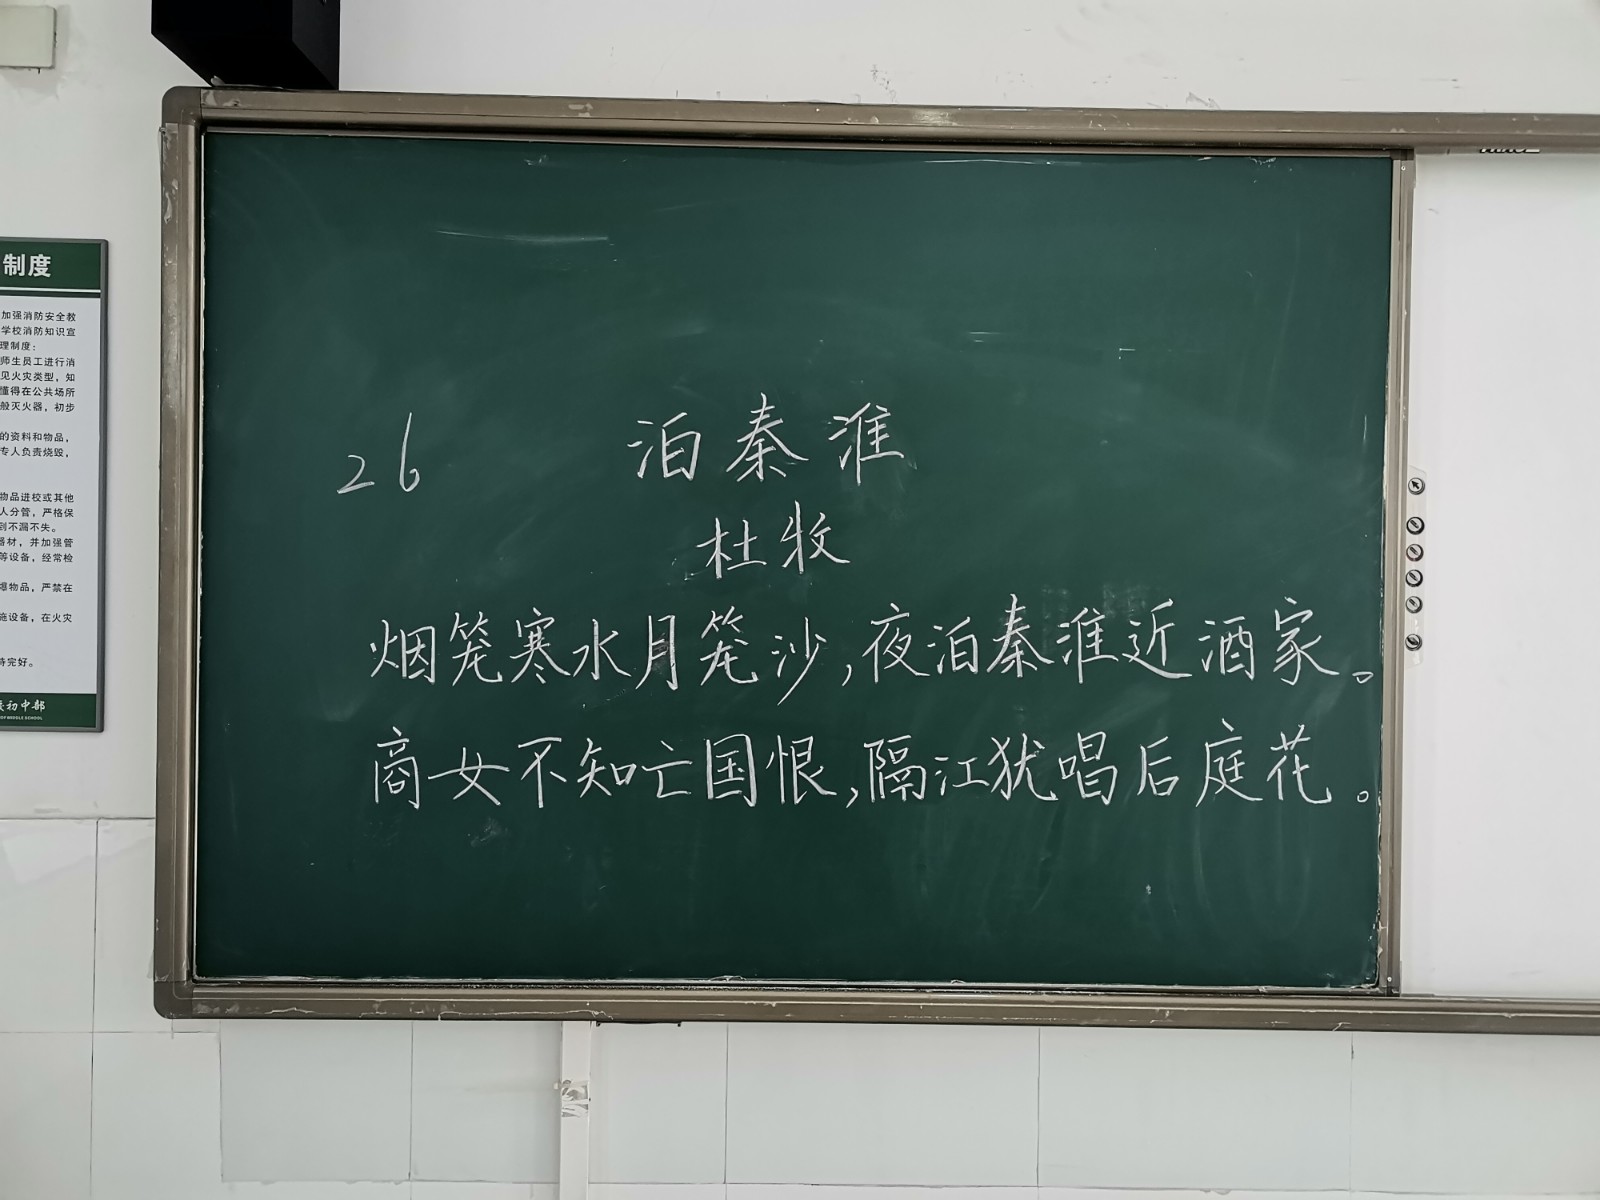 制度
加强消防安全教
学校消防知识宣
理制度：
师生员工进行消
见火灾类型，知
懂得在公共场所
般灭火器，初步
的资料和物品，
专人负责烧毁，
物品进校或其他
人分管，严格保
到不漏不失。
器材，并加强管
等设备，经常检
爆物品，严禁在
施设备，在火灾
持完好。
初中部
MIDDLE SCHOOL
26
泊秦淮
杜牧
烟笼寒水月笼沙，夜泊秦淮近酒家。
商女不知亡国恨，隔江犹唱后庭花。